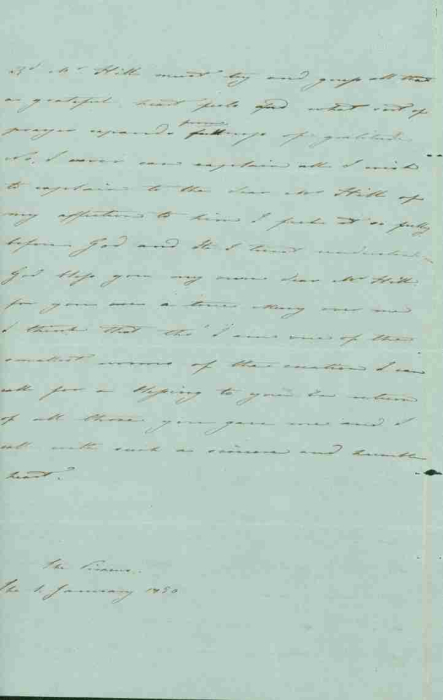 Mr Hill must try and grasp all that
a grateful heart feels and what sort of
prayer
No. I never can explain all I wish
to explain to the dear Mr Hill of
my affection to him I feel it so fully
before God and He I trust understands
God bless you my own dear Mr Hill
for you are a
I think that tho' I am one of the
smallest worms of the creation I can
ask for a blessing to you in return
of all those you gave me and I
ask with such a sincere and humble
heart.
The Piraeus.
the 1 January 1850